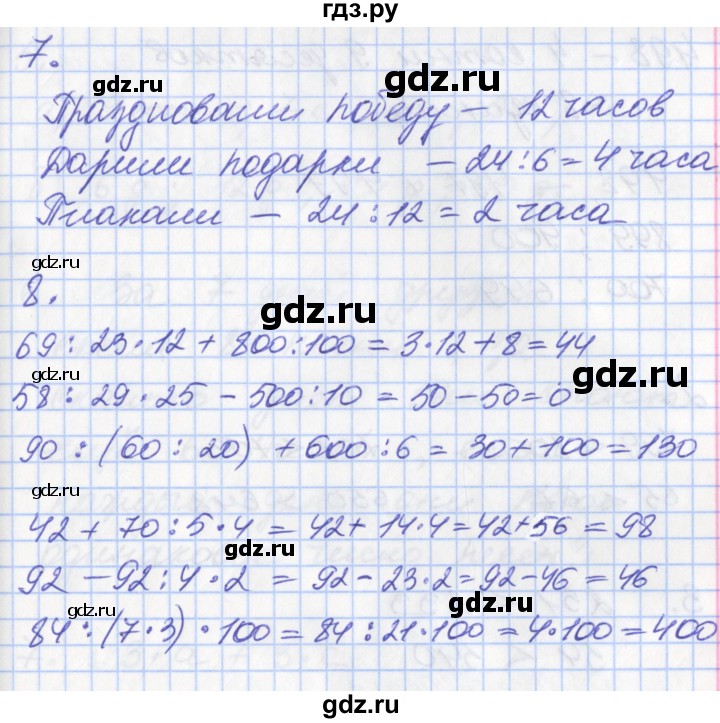 гдз.ру
7.
gdz.ru
gdz.ru
Праздновали победу — 12 часов
Дарили подарки — 24 : 6 = 4 часа
Плакали — 24 : 12 = 2 часа
gdz.ru
gdz.ru
8.
gdz.ru
69 : 23 · 12 + 800 : 100 = 3 · 12 + 8 = 44
gdz.ru
gdz.ru
58 : 29 · 25 − 500 : 10 = 50 − 50 = 0
90 : (60 : 20) + 600 : 6 = 30 + 100 = 130
gdz.ru
gdz.ru
42 + 70 : 5 · 4 = 42 + 14 · 4 = 42 + 56 = 98
gdz.ru
92 − 92 : 4 · 2 = 92 − 23 · 2 = 92 − 46 = 46
gdz.ru
gdz.ru
84 : (7 · 3) · 100 = 84 : 21 · 100 = 4 · 100 = 400
gdz.ru
gdz.ru